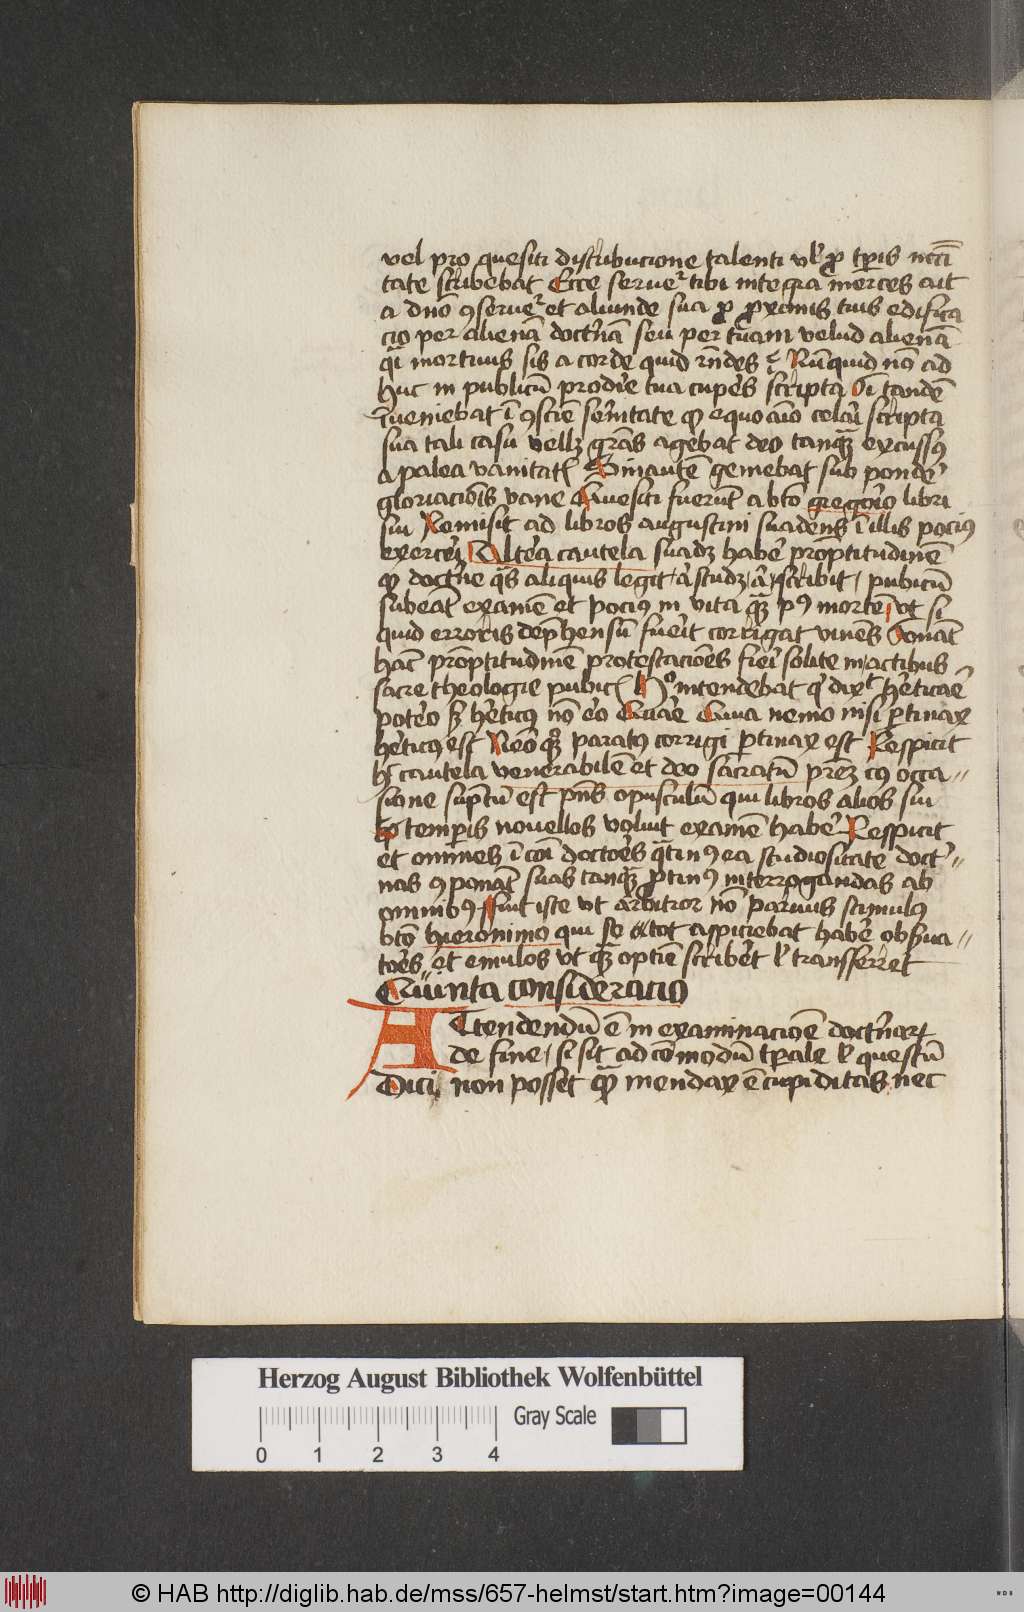 vel pro quesiti distribucione talenti vl' p tp̄is nccī
tate scribebat Ecce seruet' tibi integra merces ait
a dn̄o ꝯseruet' et aliunde sua p pximis tuis edifica
cio per alienā doctnā seu per tuam velud alienā
qi mortuus sis a corde quid rn̄des Nūquid nō ad
huc in publicū prodire tua cuperes scripta Si tandē
īueniebat ī ꝯscīe sua tali casu vellet grās agebat deo tanqͣ excussus
a palea vanitatis Sinautē gemebat sub pondere
gloriacōis vane Quesiti fuerūt a btō gregorio libri
sui Remisit ad libros augustini suadens ī illis pocius
exerceri Altera cautela suadet habere prōptitudinē
qͣ doctrīe qͣs aliquis legit a studet a scribit publicū
subeāt examē et pocius in vita qͣ pꝰ mortē vt si
quid erroris dephensū fuerit corrigat viuēs Sonāt
hāc prōptitudinē protestacōes fieri solite in actibus
sacre theologie publicis intendebat qͥ dixit hereticare
potero sꝫ hereticus nō ero Quare Quia nemo nisi ptinax
hereticus est Nec qͥ paratus corrigi ptinax est Respicit
hec cautela venerabilē et deo sacratū prem̄ cuius occa
sione sūptū est pn̄s opusculū qui libros alios sui
temporis nouellos voluit examē habere Respicit
et omnes ī cōi doctores qͣtinus ea studiositate doctri
nas ꝯponāt suas tanqͣ ptinus interrogandas ab
omnibus Fuit iste vt arbitror nō paruus stimulus
btō hieronimo qui se tot aspiciebat habere obserua
tores et emulos vt qͣ optīe scriberet l' transferret
Quinta consideracio
Attendendū ē in examinacioē doctrinarꝫ
de fine si sit ad cōmodū tpale l' questū
Dici non posset qͣ mendax ē cupiditas nec
Herzog August Bibliothek Wolfenbüttel
Gray Scale
0 1 2 3 4
© HAB http://diglib.hab.de/mss/657-helmst/start.htm?image=00144